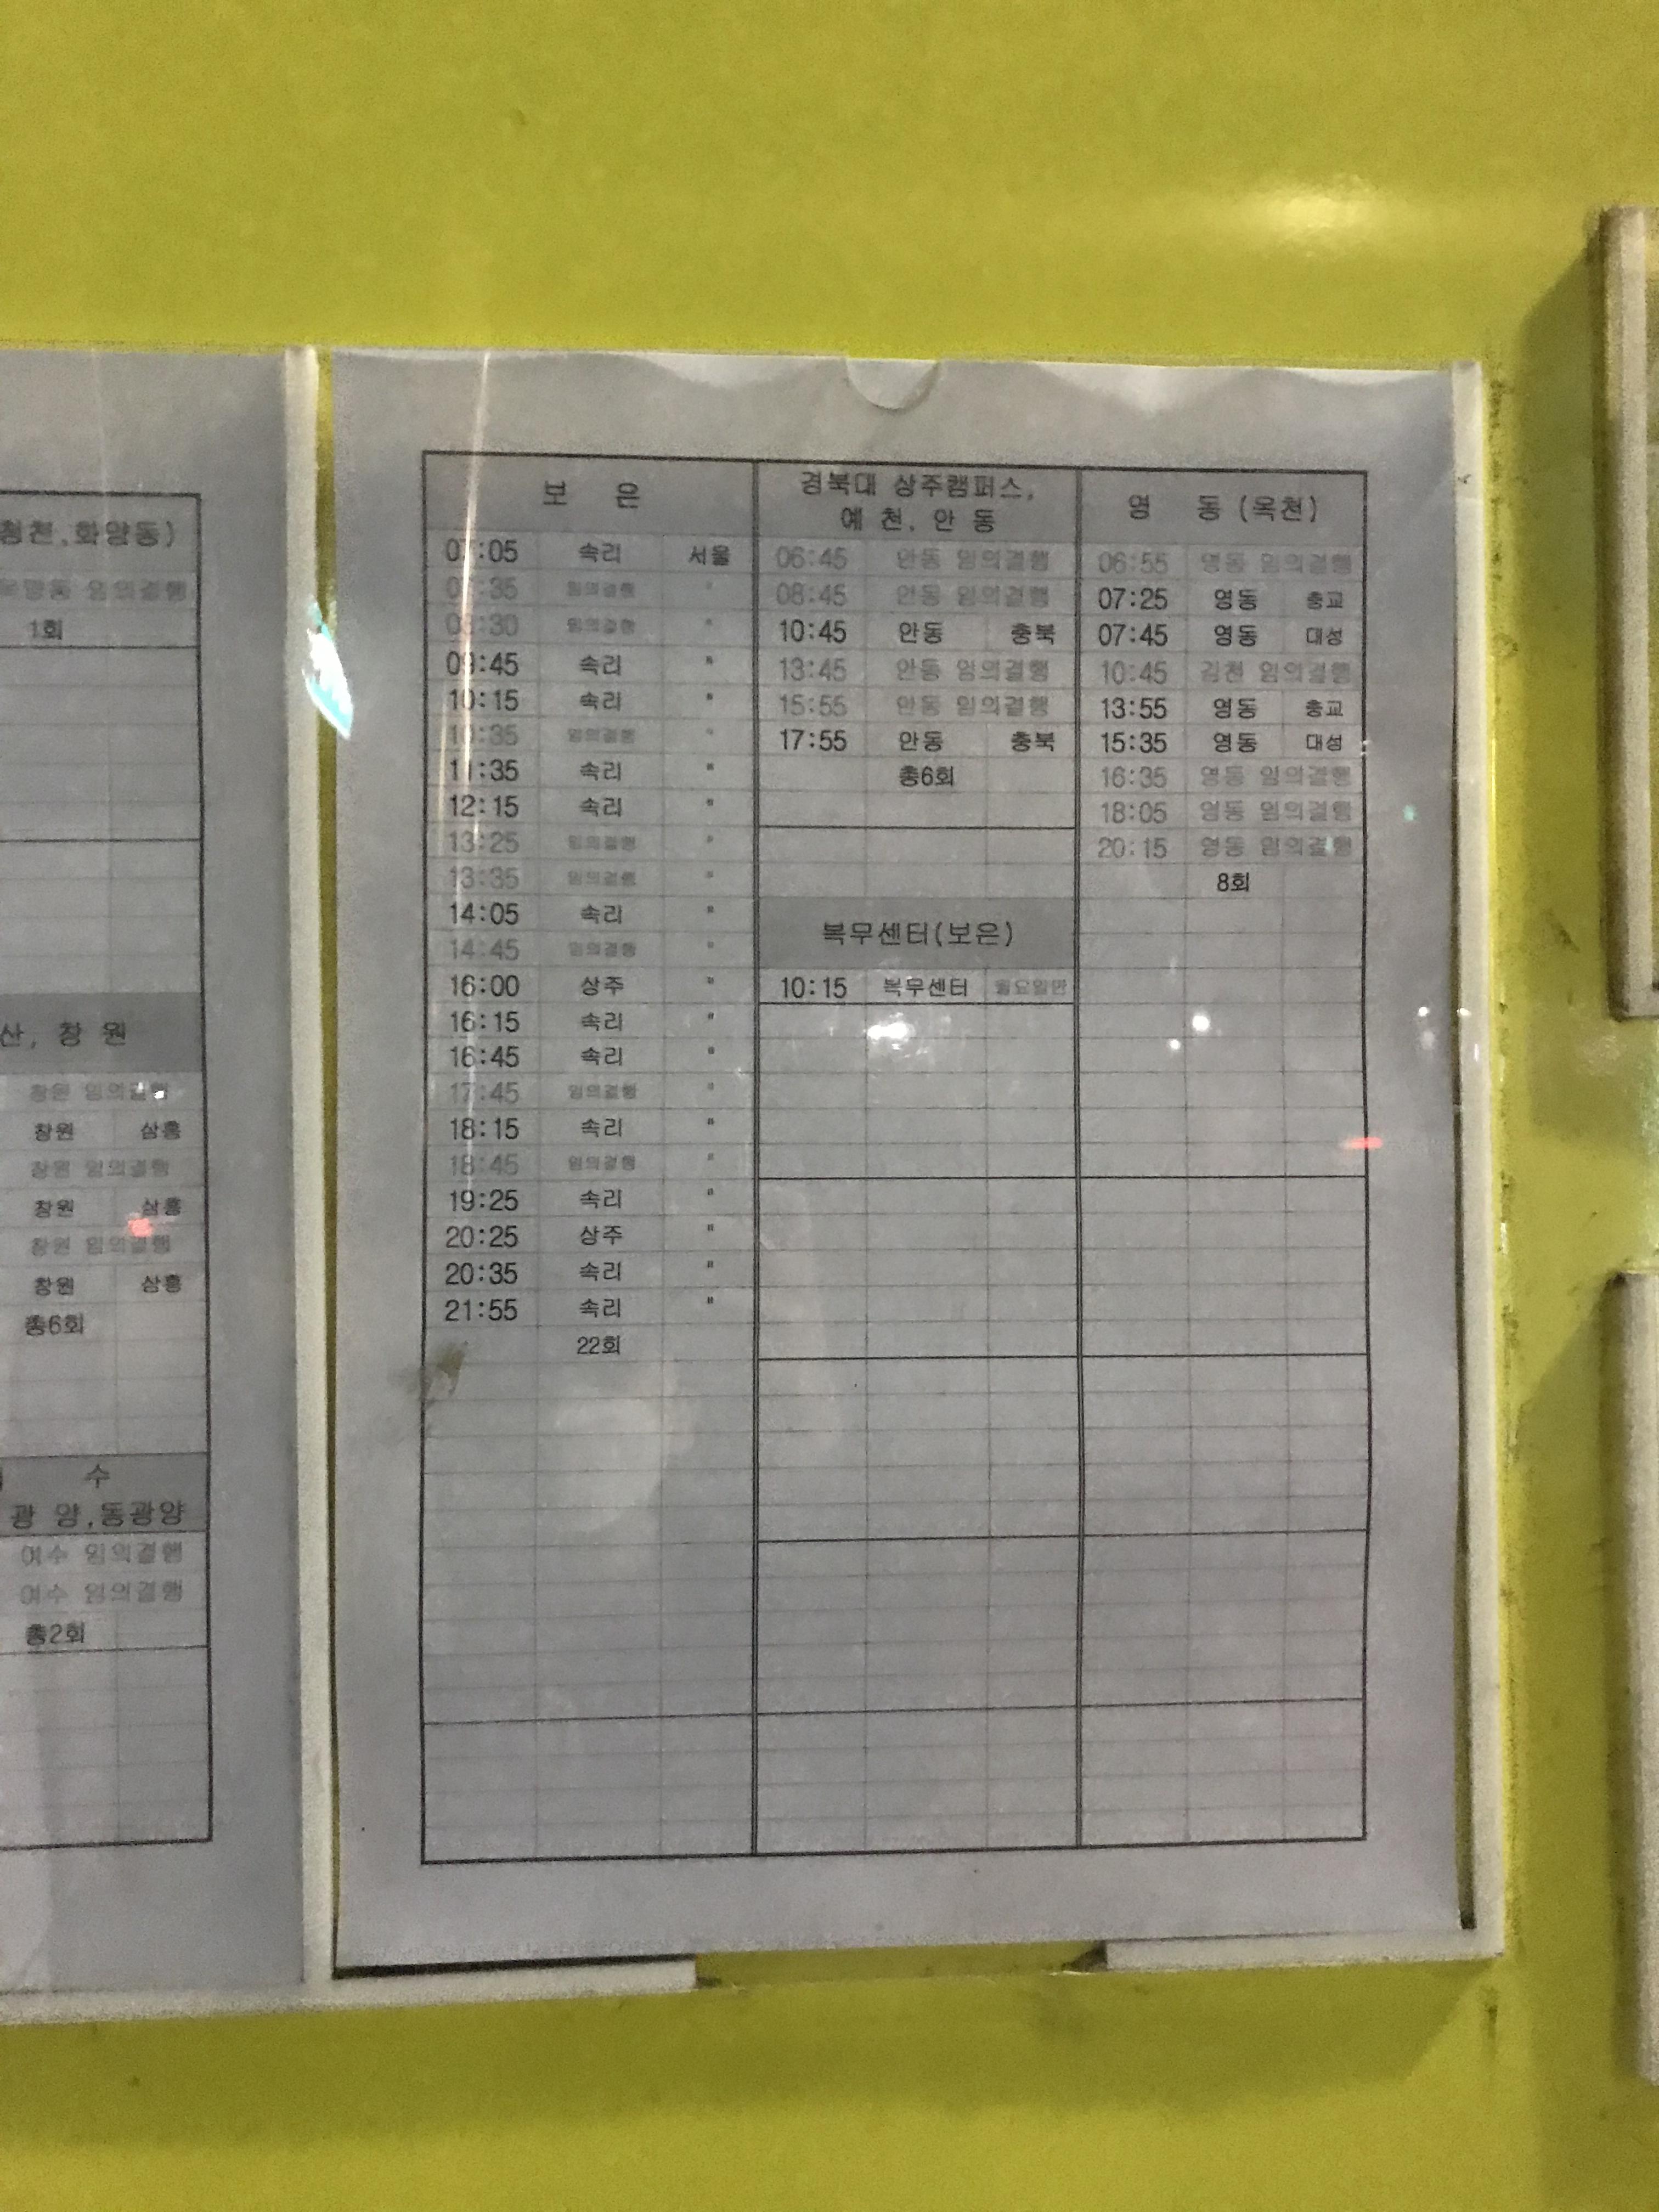 청천,화양동)
임의결행
1회
산, 창 원
창원 임의결행
창원 삼흥
창원 임의결행
창원 삼흥
창원 임의결행
창원 삼흥
총6회
수
광 양,동광양
여수 임의결행
여수 임의결행
총2회
보 은
07:05 속리 서울
07:35 임의결행 "
08:30 임의결행 "
09:45 속리 "
10:15 속리 "
10:35 임의결행 "
11:35 속리 "
12:15 속리 "
13:25 임의결행 "
13:35 임의결행 "
14:05 속리 "
14:45 임의결행 "
16:00 상주 "
16:15 속리 "
16:45 속리 "
17:45 임의결행 "
18:15 속리 "
18:45 임의결행 "
19:25 속리 "
20:25 상주 "
20:35 속리 "
21:55 속리 "
22회
경북대 상주캠퍼스,
예 천, 안 동
06:45 안동 임의결행
08:45 안동 임의결행
10:45 안동 충북
13:45 안동 임의결행
15:55 안동 임의결행
17:55 안동 충북
총6회
복무센터(보은)
10:15 복무센터 월요일만
영 동(옥천)
06:55 영동 임의결행
07:25 영동 충교
07:45 영동 대성
10:45 김천 임의결행
13:55 영동 충교
15:35 영동 대성
16:35 영동 임의결행
18:05 영동 임의결행
20:15 영동 임의결행
8회